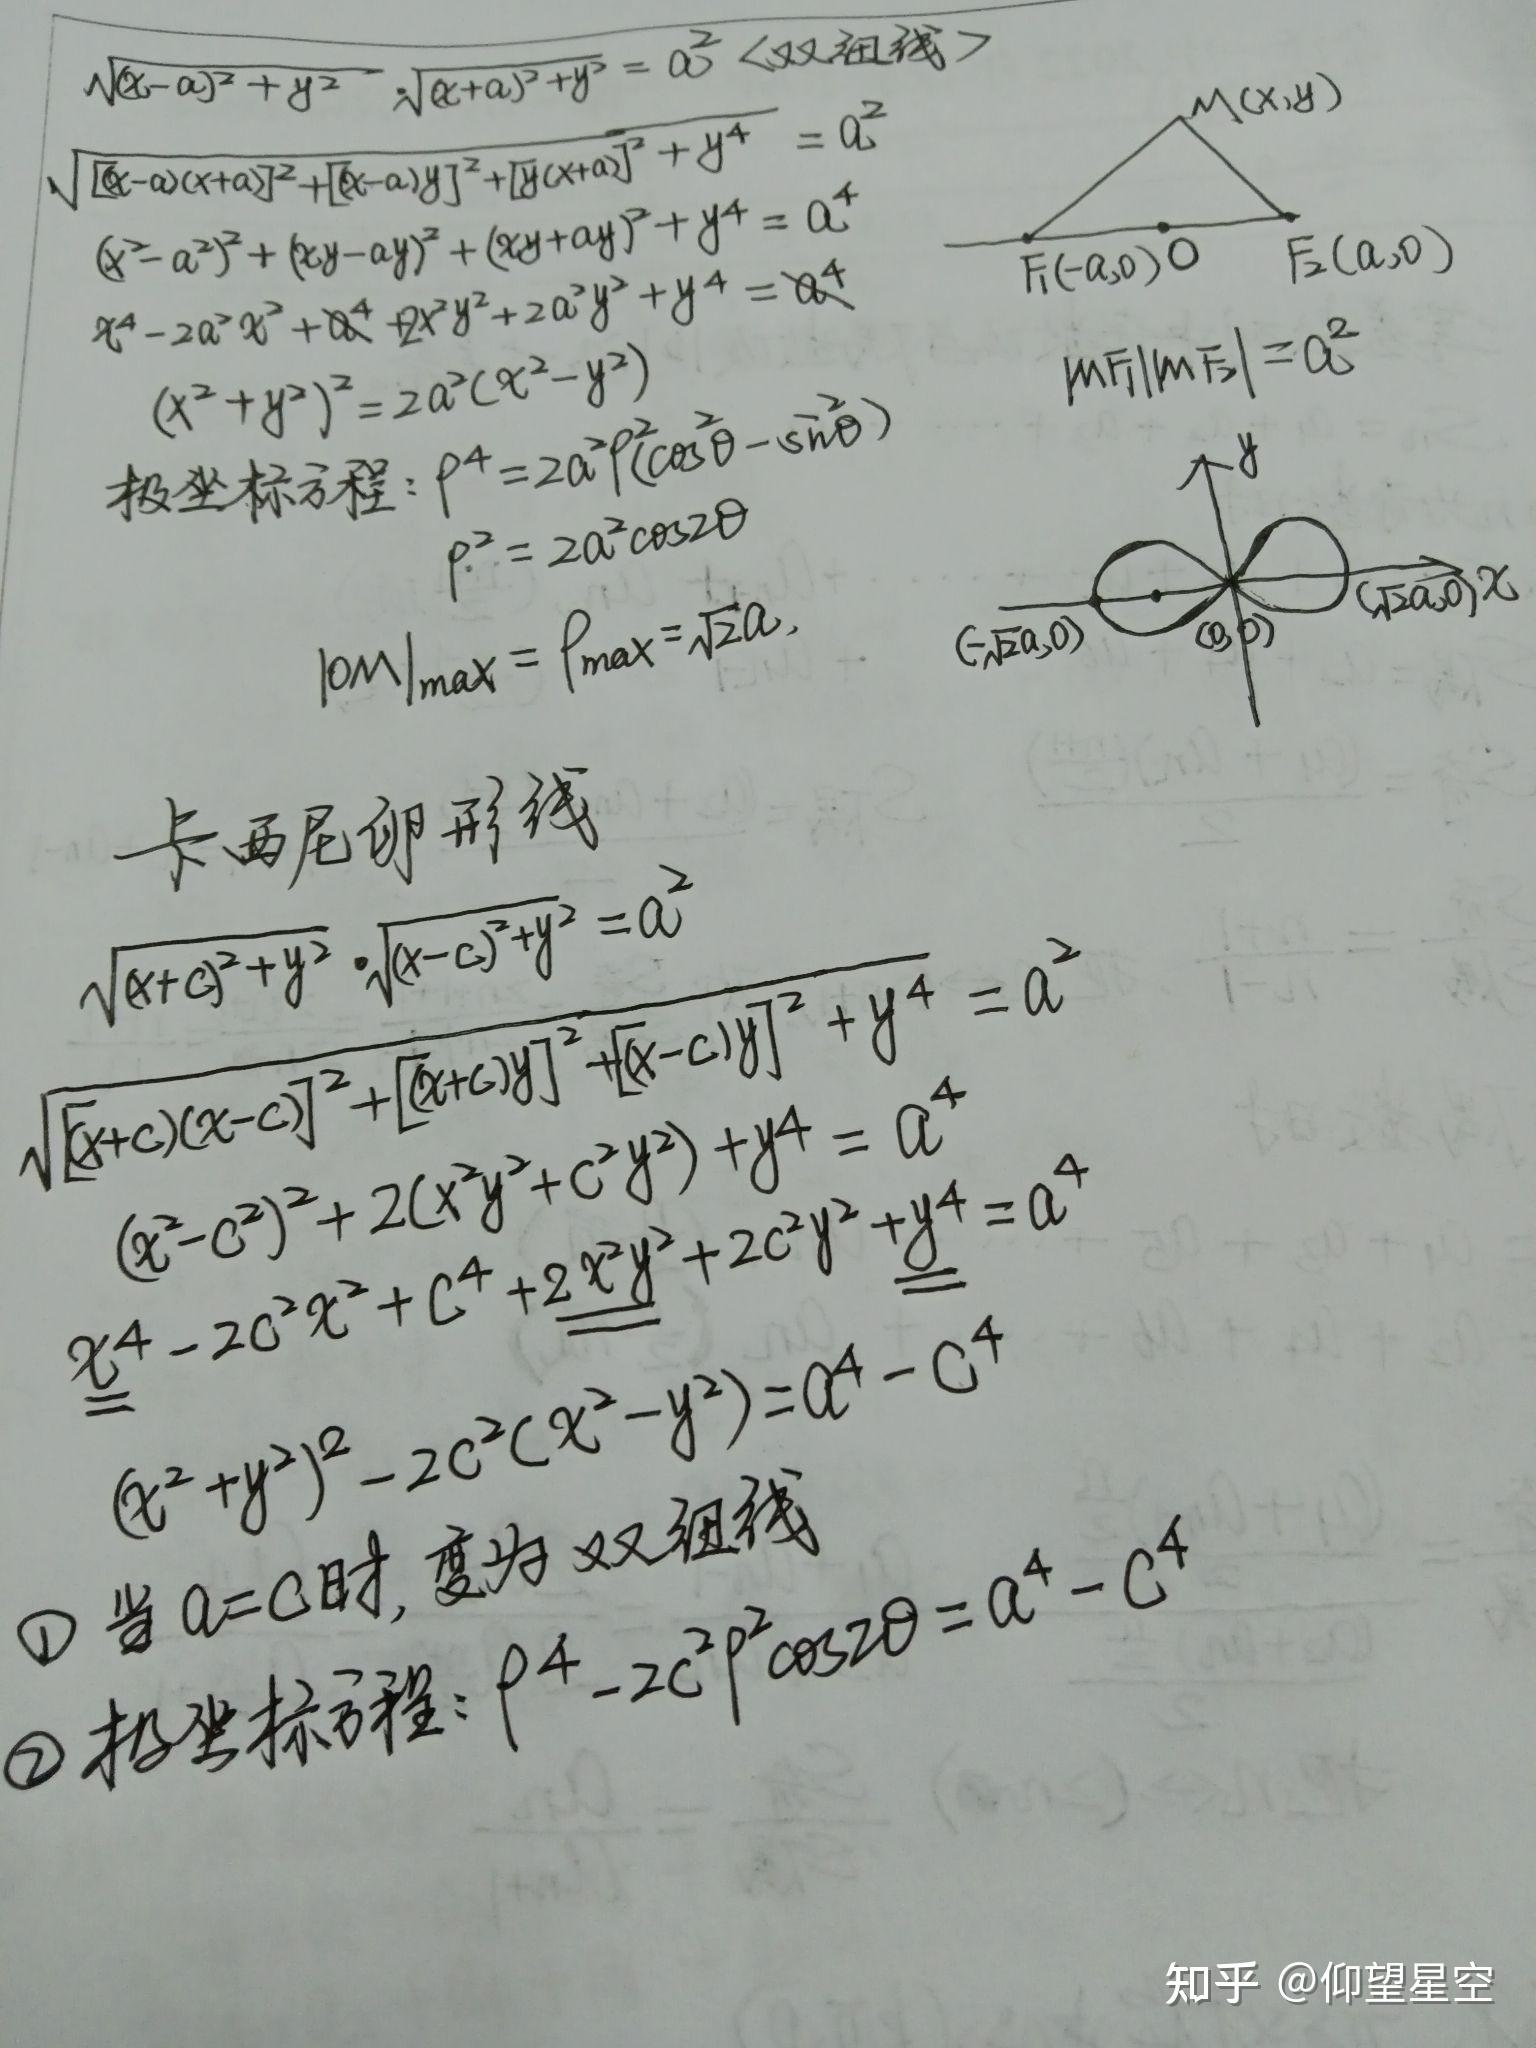 √((x-a)²+y²) · √((x+a)²+y²) = a² <双纽线>
√([(x-a)(x+a)]²+[(x-a)y]²+[y(x+a)]²+y⁴) = a²
(x²-a²)²+(xy-ay)²+(xy+ay)²+y⁴=a⁴
x⁴-2a²x²+a⁴+2x²y²+2a²y²+y⁴=a⁴
(x²+y²)²=2a²(x²-y²)
极坐标方程: ρ⁴=2a²ρ²(cos²θ-sin²θ)
ρ²=2a²cos2θ
|OM|max=ρmax=√2a,
M(x,y)
F₁(-a,0) O F₂(a,0)
|MF₁||MF₂|=a²
y
(-√2a,0) (0,0) (√2a,0) x
卡西尼卵形线
√((x+c)²+y²) · √((x-c)²+y²) = a²
√([(x+c)(x-c)]²+[(x+c)y]²+[(x-c)y]²+y⁴) = a²
(x²-c²)²+2(x²y²+c²y²)+y⁴=a⁴
x⁴-2c²x²+c⁴+2x²y²+2c²y²+y⁴=a⁴
(x²+y²)²-2c²(x²-y²)=a⁴-c⁴
① 当a=c时,变为双纽线
② 极坐标方程: ρ⁴-2c²ρ²cos2θ=a⁴-c⁴
知乎 @仰望星空